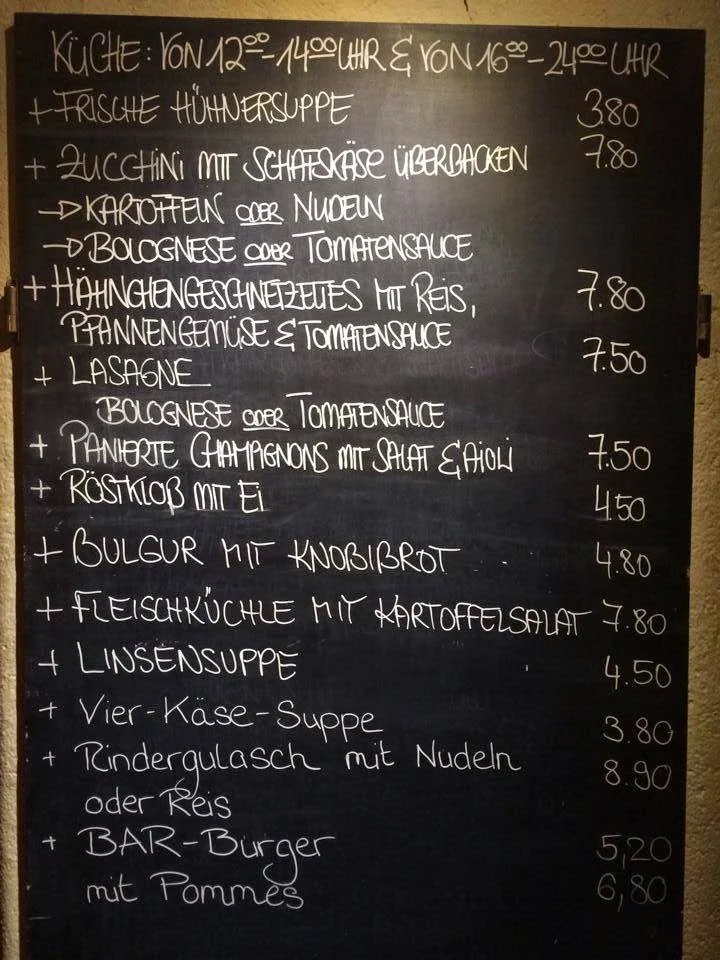 KÜCHE: VON 12⁰⁰-14⁰⁰ UHR & VON 16⁰⁰-24⁰⁰ UHR
+ FRISCHE HÜHNERSUPPE 3.80
+ ZUCCHINI MIT SCHAFSKÄSE ÜBERBACKEN 7.80
→ KARTOFFELN ODER NUDELN
→ BOLOGNESE ODER TOMATENSAUCE
+ HÄHNCHENGESCHNETZELTES MIT REIS, 7.80
PFANNENGEMÜSE & TOMATENSAUCE
+ LASAGNE 7.50
BOLOGNESE ODER TOMATENSAUCE
+ PANIERTE CHAMPIGNONS MIT SALAT & AIOLI 7.50
+ RÖSTKLOß MIT Ei 4.50
+ BULGUR MIT KNOBIBROT 4.80
+ FLEISCHKÜCHLE MIT KARTOFFELSALAT 7.80
+ LINSENSUPPE 4.50
+ Vier-Käse-Suppe 3.80
+ Rindergulasch mit Nudeln 8.90
oder Reis
+ BAR-Burger 5,20
mit Pommes 6,80